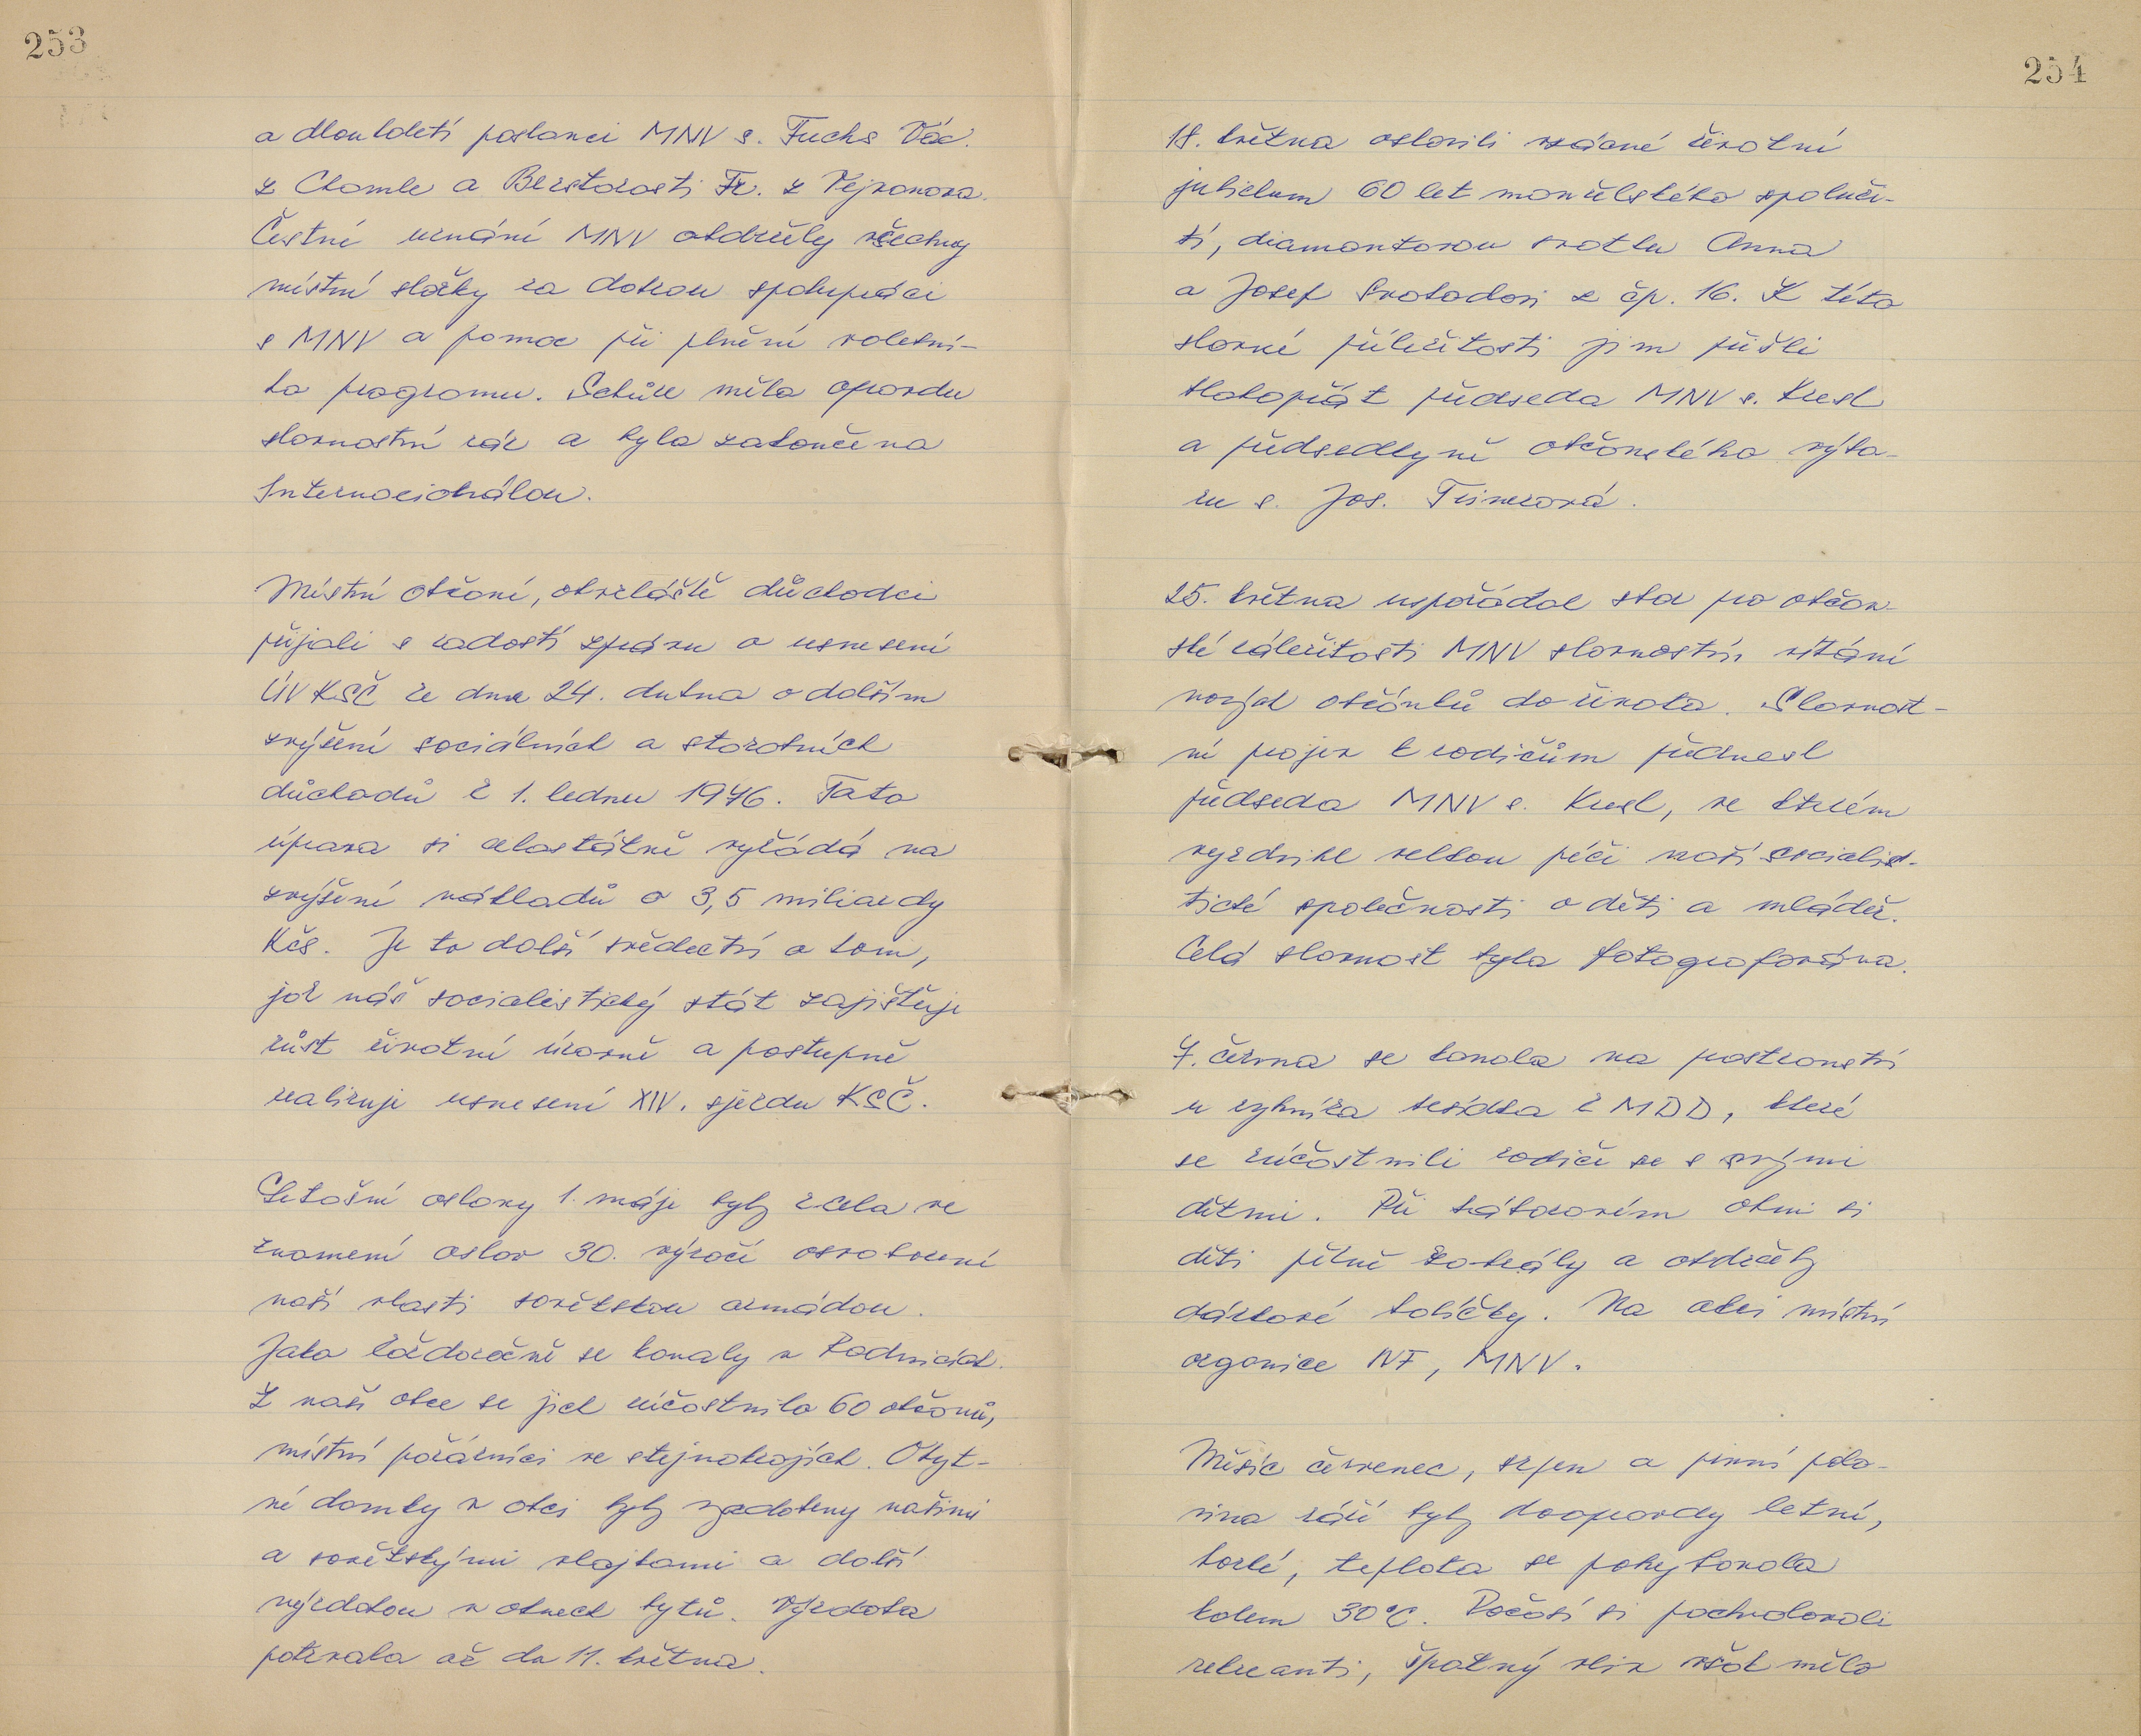 253
a dlouholetí poslanci MNV s. Fuchs Vác.
z Chomle a Brstorosti Fr. z Vejvanova.
Čestné uznání MNV obdržely všechny
místní složky za dobrou spolupráci
s MNV a pomoc při plnění volební-
ho programu. Schůze měla opravdu
slavnostní ráz a byla zakončena
Internacionálou.
Místní občané, obzvláště důchodci
přijali s radostí zprávu o usnesení
ÚV KSČ ze dne 24. dubna o dalším
zvýšení sociálních a starobních
důchodů k 1. lednu 1976. Tato
úprava si celostátně vyžádá na
zvýšení nákladů o 3,5 miliardy
Kčs. Je to další svědectví o tom,
jak náš socialistický stát zajišťuje
růst životní úrovně a postupně
realizuje usnesení XIV. sjezdu KSČ.
Letošní oslavy 1. máje byly zcela ve
znamení oslav 30. výročí osvobození
naší vlasti sovětskou armádou.
Jako každoročně se konaly v Radnicích.
Z naší obce se jich účastnilo 60 občanů,
místní požárníci ve stejnokrojích. Obyt-
né domky v obci byly vyzdobeny našimi
a sovětskými vlajkami a další
výzdobou v oknech bytů. Výzdoba
potrvala až do 11. května.
254
18. května oslavili vzácné životní
jubileum 60 let manželského spoluži-
tí, diamantovou svatbu Anna
a Josef Svobodovi z čp. 16. K této
slavné příležitosti jim přišli
blahopřát předseda MNV s. Kresl
a předsedkyně občanského výbo-
ru s. Jos.
25. května uspořádal sbor pro občan-
ské záležitosti MNV slavnostní vítání
nových občánků do života. Slavnost-
ní projev k rodičům přednesl
předseda MNV s. Kresl, ve kterém
vyzdvihl velkou péči naší socialis-
tické společnosti o děti a mládež.
Celá slavnost byla fotografována.
7. června se konala na prostranství
u rybníka besídka k MDD, které
se zúčastnili rodiče se s svými
dětmi. Při táborovém ohni si
děti pěkně zahrály a obdržely
dárkové balíčky. Na akci místní
organizace NF, MNV.
Měsíc červenec, srpen a první polo-
vina září byly doopravdy letní,
horké, teplota se pohybovala
kolem 30°C. Počasí si pochvalovali
rekreanti, špatný vliv však mělo